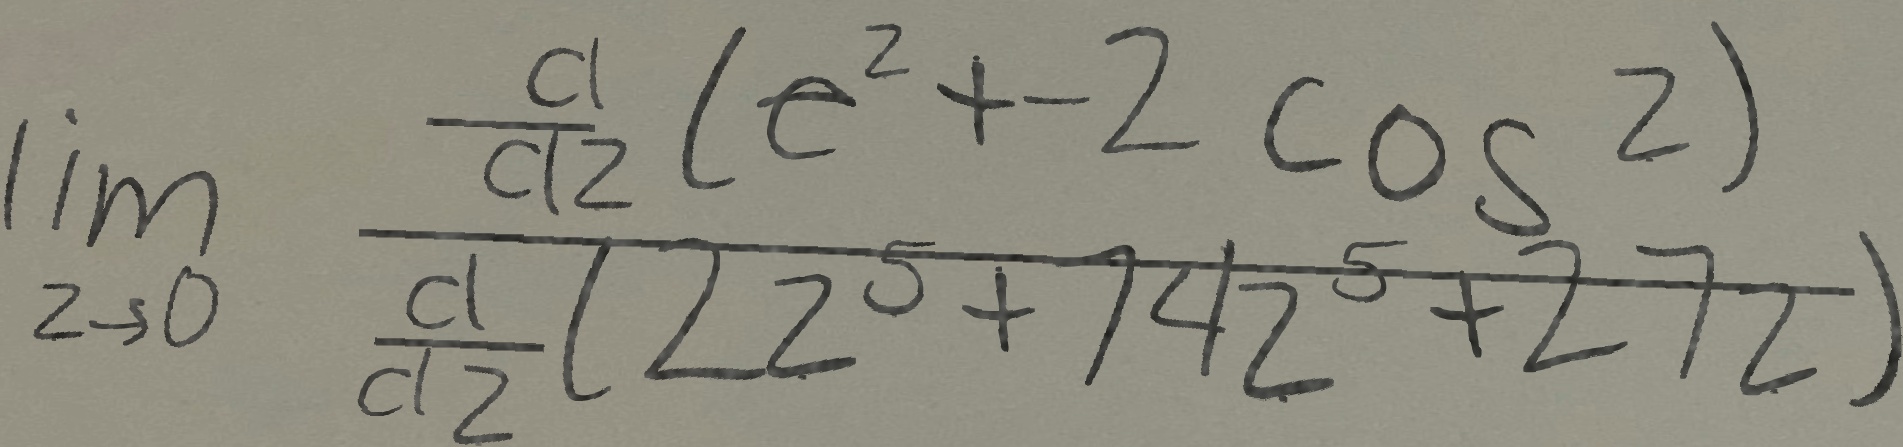 \lim_{z \to 0} \frac{\frac{d}{dz}(e^{z} + -2 \cos z)}{\frac{d}{dz}(2z^{5} + 74z^{5} + 27z)}